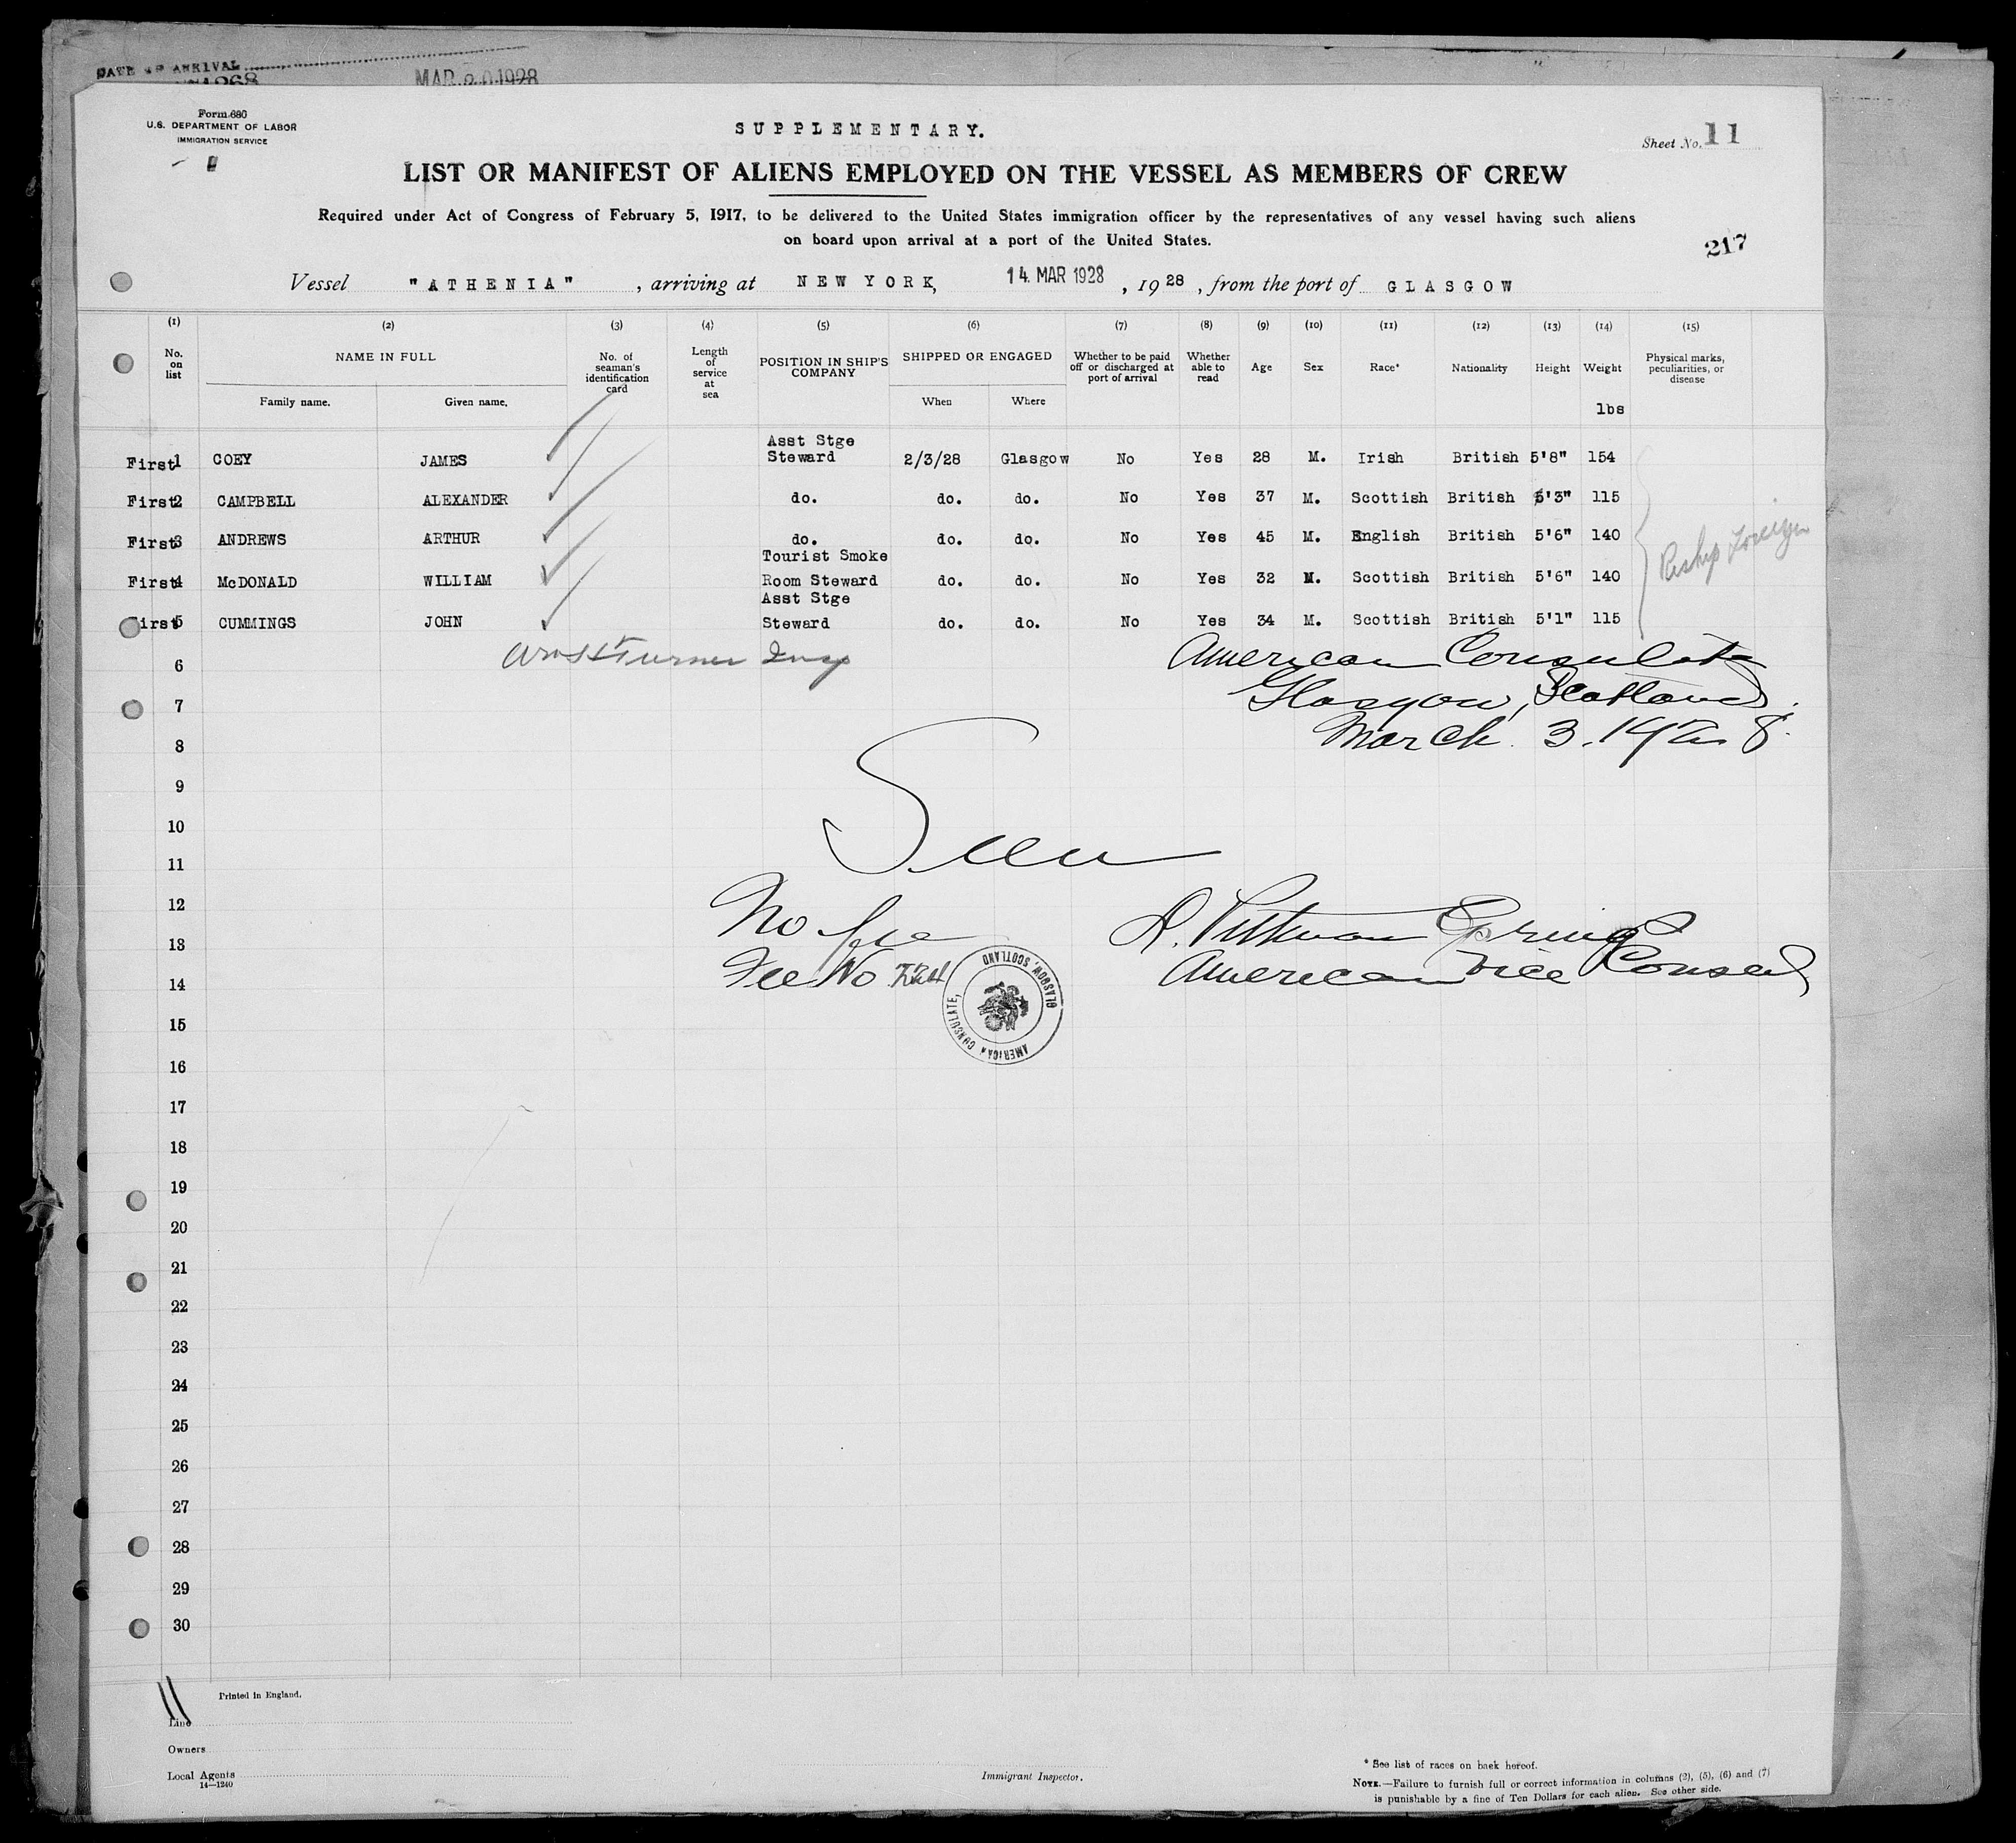 DATE OF ARRIVAL
MAR 20 1928
Form 680
U.S. DEPARTMENT OF LABOR
IMMIGRATION SERVICE
SUPPLEMENTARY.
Sheet No. 11
LIST OR MANIFEST OF ALIENS EMPLOYED ON THE VESSEL AS MEMBERS OF CREW
Required under Act of Congress of February 5, 1917, to be delivered to the United States immigration officer by the representatives of any vessel having such aliens
on board upon arrival at a port of the United States.
217
Vessel "ATHENIA" , arriving at NEW YORK, 14 MAR 1928 , 1928 , from the port of GLASGOW
(1) (2) (3) (4) (5) (6) (7) (8) (9) (10) (11) (12) (13) (14) (15)
No. on list NAME IN FULL No. of seaman's identification card Length of service at sea POSITION IN SHIP'S COMPANY SHIPPED OR ENGAGED Whether to be paid off or discharged at port of arrival Whether able to read Age Sex Race* Nationality Height Weight Physical marks, peculiarities, or disease
Family name. Given name. When Where lbs
First 1 COEY JAMES Asst Stge Steward 2/3/28 Glasgow No Yes 28 M. Irish British 5'8" 154
First 2 CAMPBELL ALEXANDER do. do. do. No Yes 37 M. Scottish British 5'3" 115
First 3 ANDREWS ARTHUR do. do. do. No Yes 45 M. English British 5'6" 140
First 4 McDONALD WILLIAM Tourist Smoke Room Steward do. do. No Yes 32 M. Scottish British 5'6" 140
First 5 CUMMINGS JOHN Asst Stge Steward do. do. No Yes 34 M. Scottish British 5'1" 115
Reship Foreign
6 Turner Insp American Consulate
7 Glasgow, Scotland.
8 March 3, 1928.
9
10
11 Seen
12
13 No fee
14 Fee No American Vice Consul
AMERICAN CONSULATE, GLASGOW, SCOTLAND
15
16
17
18
19
20
21
22
23
24
25
26
27
28
29
30
Printed in England.
Line
Owners
Local Agents
14—1240
Immigrant Inspector.
* See list of races on back hereof.
NOTE.—Failure to furnish full or correct information in columns (2), (5), (6) and (7)
is punishable by a fine of Ten Dollars for each alien. See other side.